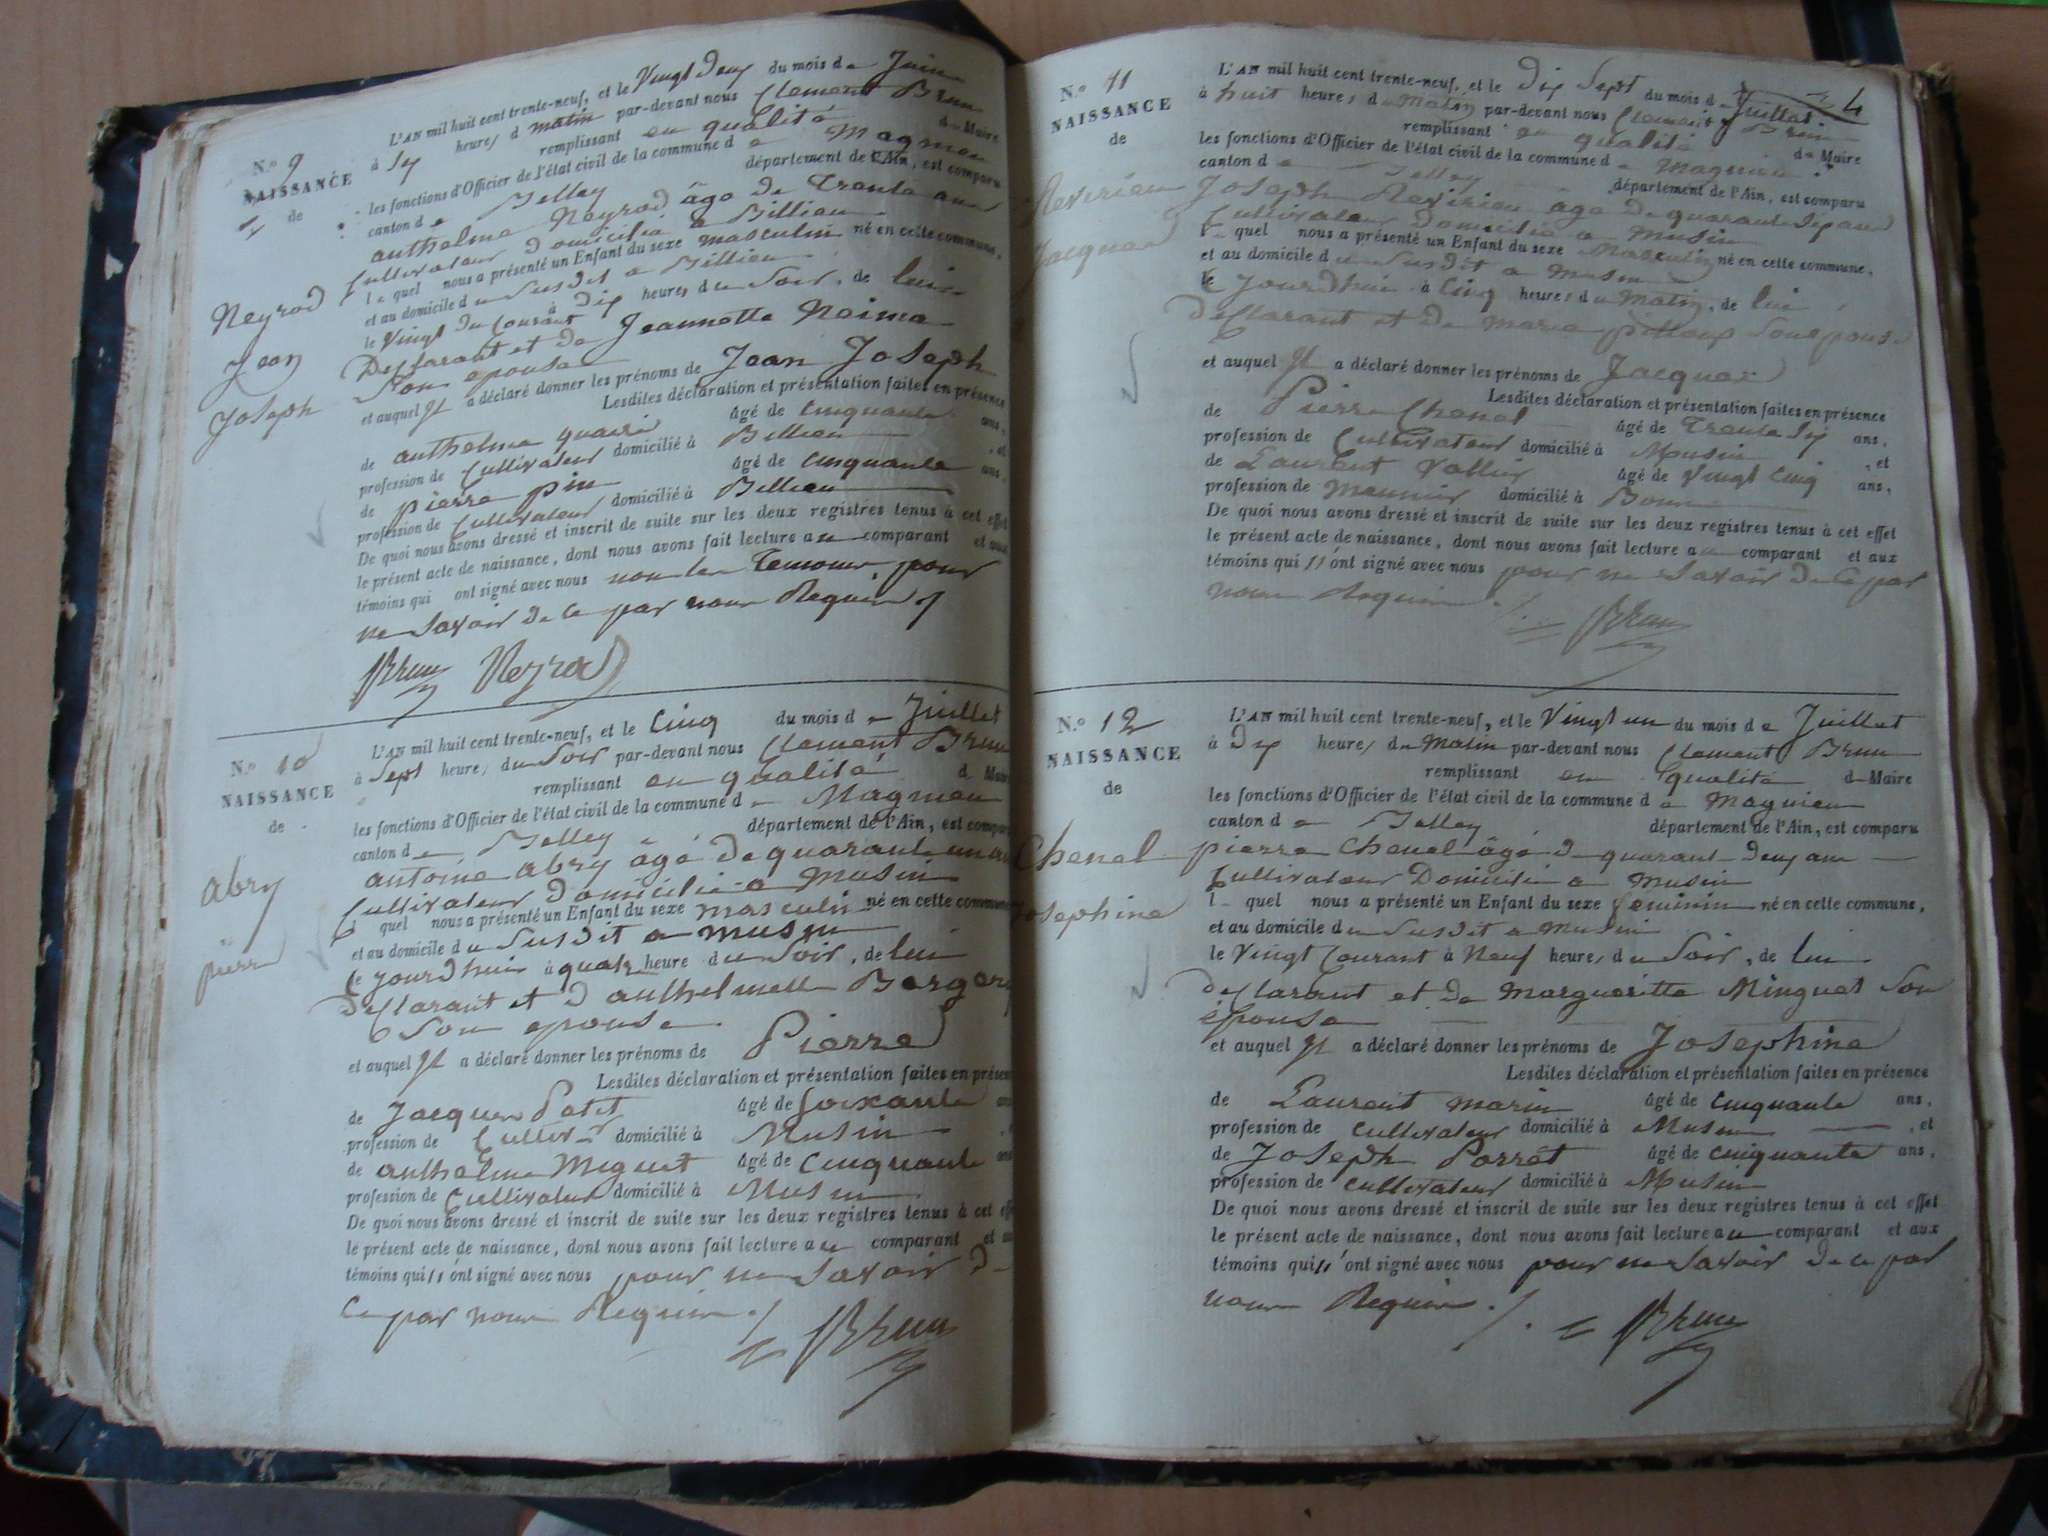 N.° 9
NAISSANCE
de
Neyrod
Jean
Joseph
L'AN mil huit cent trente-neuf, et le Vingt deux du mois de Juin
à Six heures du matin par-devant nous Clement Brun
remplissant en qualité de Maire
les fonctions d'Officier de l'état civil de la commune de Magnieu
canton de Belley département de l'Ain, est comparu
anthelme Neyrod âgé de Trente ans
Cultivateur domicilié a Billieu
le quel nous a présenté un Enfant du sexe masculin né en cette commune,
et au domicile du Susdit a Billieu
le Vingt du Courant à dix heures du Soir, de lui
Desclarant et de Jeannette
Son epouse
et auquel Il a déclaré donner les prénoms de Jean Joseph
Lesdites déclaration et présentation faites en présence
de anthelme âgé de cinquante ans,
profession de Cultivateur domicilié à Billieu , et
de pierre pin âgé de cinquante ans,
profession de Cultivateur domicilié à Billieu
De quoi nous avons dressé et inscrit de suite sur les deux registres tenus à cet effet
le présent acte de naissance, dont nous avons fait lecture au comparant et aux
témoins qui ont signé avec nous non les Temoins pour
ne Savoir de ce par nous Requis
Brun Neyrod
N.° 10
NAISSANCE
de
Abry
pierre
L'AN mil huit cent trente-neuf, et le Cinq du mois de Juillet
à Sept heures du Soir par-devant nous Clement Brun
remplissant en qualité de Maire
les fonctions d'Officier de l'état civil de la commune de Magnieu
canton de Belley département de l'Ain, est comparu
antoine abry âgé de quarante un ans
Cultivateur Domicilié a Musin
quel nous a présenté un Enfant du sexe masculin né en cette commune
et au domicile du Susdit a musin
le jourdhui à quatre heure du Soir, de lui
Desclarant et d anthelmette
Son epouse
et auquel Il a déclaré donner les prénoms de Pierre
Lesdites déclaration et présentation faites en présence
de Jacques Petit âgé de Soixante ans
profession de Cultiv. domicilié à Musin
de anthelme Miguet âgé de Cinquante ans
profession de Cultivateur domicilié à Musin
De quoi nous avons dressé et inscrit de suite sur les deux registres tenus à cet effet
le présent acte de naissance, dont nous avons fait lecture au comparant et aux
témoins qui n'ont signé avec nous pour ne Savoir de
Ce par nous Requis
Brun
4
N.° 11
NAISSANCE
de
Revirieu
Jacques
L'AN mil huit cent trente-neuf, et le Dix Sept du mois de Juillet
à huit heures du Matin par-devant nous Clement Brun
remplissant en qualité de Maire
les fonctions d'Officier de l'état civil de la commune de Magnieu
canton de Belley département de l'Ain, est comparu
Joseph Revirieu âgé de quarante Six ans
Cultivateur Domicilié a Musin
le quel nous a présenté un Enfant du sexe Masculin né en cette commune,
et au domicile du Susdit a musin
le Jourdhui à Cinq heures du Matin, de lui
Desclarant et de marie Son epouse
et auquel Il a déclaré donner les prénoms de Jacques
Lesdites déclaration et présentation faites en présence
de Pierre Chenel âgé de Trente Six ans,
profession de Cultivateur domicilié à Musin , et
de Laurent Vallin âgé de Vingt Cinq ans,
profession de Meunier domicilié à
De quoi nous avons dressé et inscrit de suite sur les deux registres tenus à cet effet
le présent acte de naissance, dont nous avons fait lecture au comparant et aux
témoins qui n'ont signé avec nous pour ne Savoir de Ce par
nous Requis
Brun
N.° 12
NAISSANCE
de
Chenel
Josephine
L'AN mil huit cent trente-neuf, et le Vingt un du mois de Juillet
à Dix heures du Matin par-devant nous Clement Brun
remplissant en qualité de Maire
les fonctions d'Officier de l'état civil de la commune de Magnieu
canton de Belley département de l'Ain, est comparu
pierre Chenel âgé de quarante deux ans
Cultivateur Domicilié a Musin
le quel nous a présenté un Enfant du sexe feminin né en cette commune,
et au domicile du Susdit a Musin
le Vingt Courant à Neuf heures du Soir, de lui
desclarant et de Margueritte Minguet Son
épouse
et auquel Il a déclaré donner les prénoms de Josephine
Lesdites déclaration et présentation faites en présence
de Laurent Marin âgé de cinquante ans,
profession de cultivateur domicilié à Musin , et
de Joseph Porret âgé de cinquante ans,
profession de cultivateur domicilié à Musin
De quoi nous avons dressé et inscrit de suite sur les deux registres tenus à cet effet
le présent acte de naissance, dont nous avons fait lecture au comparant et aux
témoins qui n'ont signé avec nous pour ne Savoir de ce par
nous Requis
Brun